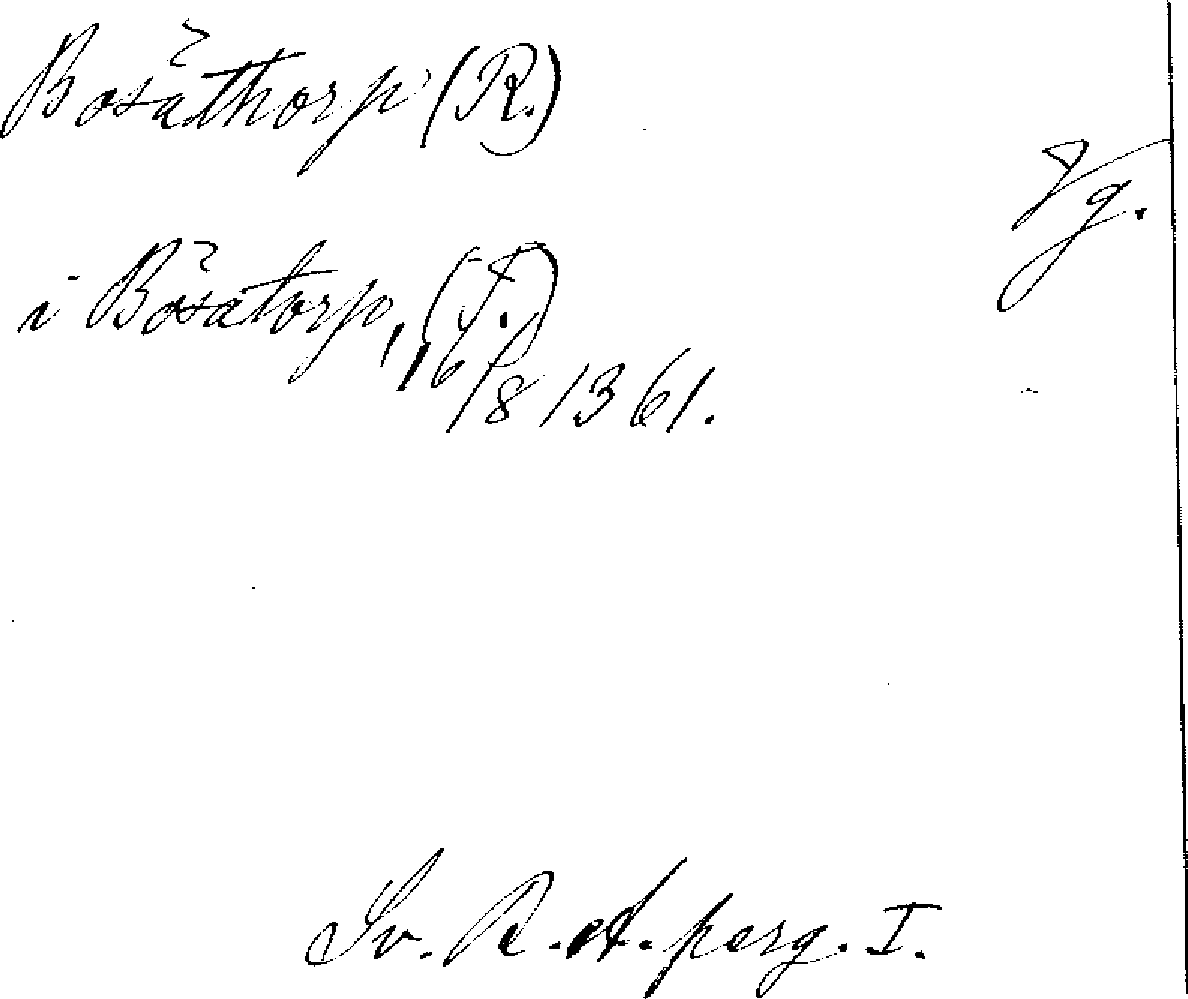 Bosåthorp (R.)
Vg.
i Bosåtorp, (T.)
16/8 1361.
Sv. R. A. perg. I.